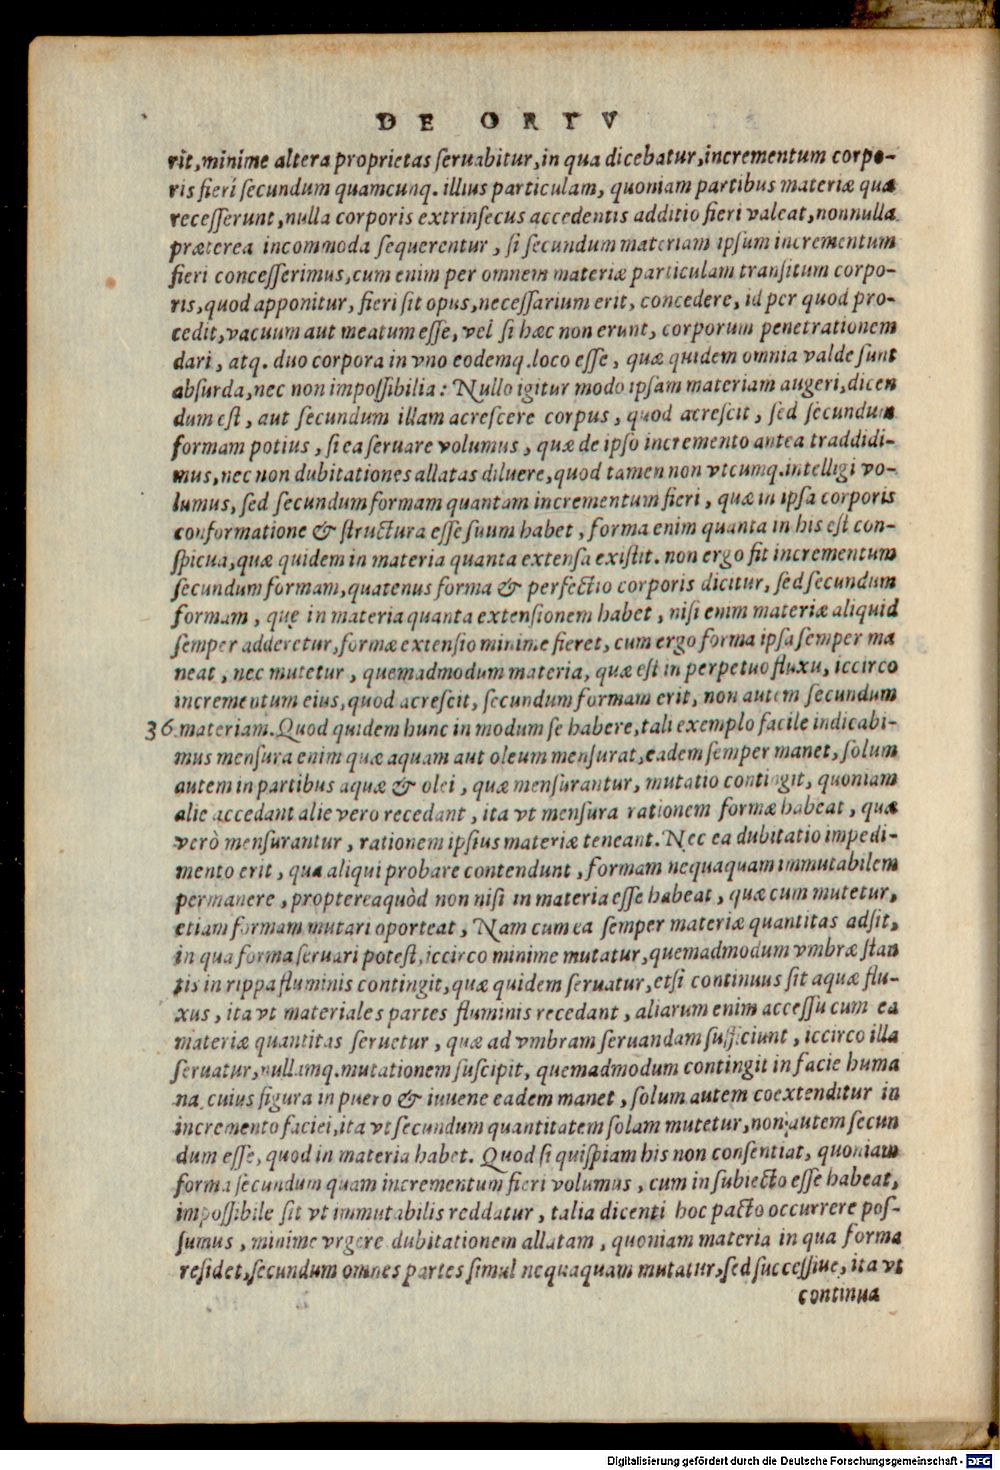 DE ORTV
rit, minime altera proprietas seruabitur, in qua dicebatur, incrementum corpo-
ris fieri secundum quamcunq. illius particulam, quoniam partibus materiæ quæ
recesserunt, nulla corporis extrinsecus accedentis additio fieri valeat, nonnulla
præterea incommoda sequerentur, si secundum materiam ipsum incrementum
fieri concesserimus, cum enim per omnem materiæ particulam transitum corpo-
ris, quod apponitur, fieri sit opus, necessarium erit, concedere, id per quod pro-
cedit, vacuum aut meatum esse, vel si hæc non erunt, corporum penetrationem
dari, atq. duo corpora in vno eodemq. loco esse, quæ quidem omnia valde sunt
absurda, nec non impossibilia: Nullo igitur modo ipsam materiam augeri, dicen
dum est, aut secundum illam acrescere corpus, quod acrescit, sed secundum
formam potius, si ea seruare volumus, quæ de ipso incremento antea traddidi-
mus, nec non dubitationes allatas diluere, quod tamen non vtcumq. intelligi vo-
lumus, sed secundum formam quantam incrementum fieri, quæ in ipsa corporis
conformatione & structura esse suum habet, forma enim quanta in his est con-
spicua, quæ quidem in materia quanta extensa existit. non ergo fit incrementum
secundum formam, quatenus forma & perfectio corporis dicitur, sed secundum
formam, quę in materia quanta extensionem habet, nisi enim materiæ aliquid
semper adderetur, formæ extensio minime fieret, cum ergo forma ipsa semper ma
neat, nec mutetur, quemadmodum materia, quæ est in perpetuo fluxu, iccirco
incrementum eius, quod acrescit, secundum formam erit, non autem secundum
36 materiam. Quod quidem hunc in modum se habere, tali exemplo facile indicabi-
mus mensura enim quæ aquam aut oleum mensurat, eadem semper manet, solum
autem in partibus aquæ & olei, quæ mensurantur, mutatio contingit, quoniam
alie accedant alie vero recedant, ita vt mensura rationem formæ habeat, quæ
verò mensurantur, rationem ipsius materiæ teneant. Nec ea dubitatio impedi-
mento erit, qua aliqui probare contendunt, formam nequaquam immutabilem
permanere, proptereaquòd non nisi in materia esse habeat, quæ cum mutetur,
etiam formam mutari oporteat, Nam cum ea semper materiæ quantitas adsit,
in qua forma seruari potest, iccirco minime mutatur, quemadmodum vmbræ stan
tis in rippa fluminis contingit, quæ quidem seruatur, etsi continuus sit aquæ flu-
xus, ita vt materiales partes fluminis recedant, aliarum enim accessu cum ea
materiæ quantitas seruetur, quæ ad vmbram seruandam sufficiunt, iccirco illa
seruatur, nullamq. mutationem suscipit, quemadmodum contingit in facie huma
na, cuius figura in puero & iuuene eadem manet, solum autem coextenditur in
incremento faciei, ita vt secundum quantitatem solam mutetur, non autem secun
dum esse, quod in materia habet. Quod si quispiam his non consentiat, quoniam
forma secundum quam incrementum fieri volumus, cum in subiecto esse habeat,
impossibile sit vt immutabilis reddatur, talia dicenti hoc pacto occurrere pos-
sumus, minime vrgere dubitationem allatam, quoniam materia in qua forma
residet, secundum omnes partes simul nequaquam mutatur, sed successiue, ita vt
continua
Digitalisierung gefördert durch die Deutsche Forschungsgemeinschaft - DFG